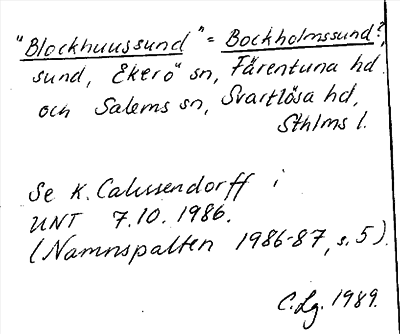 "Blockhuussund" = Bockholmssund?,
sund, Ekerö sn, Färentuna hd
och Salems sn, Svartlösa hd,
Sthlms l.
Se K. Calissendorff i
UNT 7.10.1986.
(Namnspalten 1986-87, s. 5).
C. Lg. 1989.